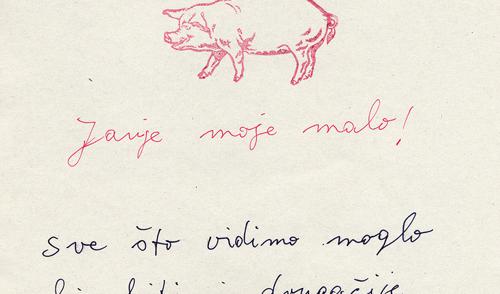 Janje moje malo!
sve što vidimo moglo
bi biti i drugačije